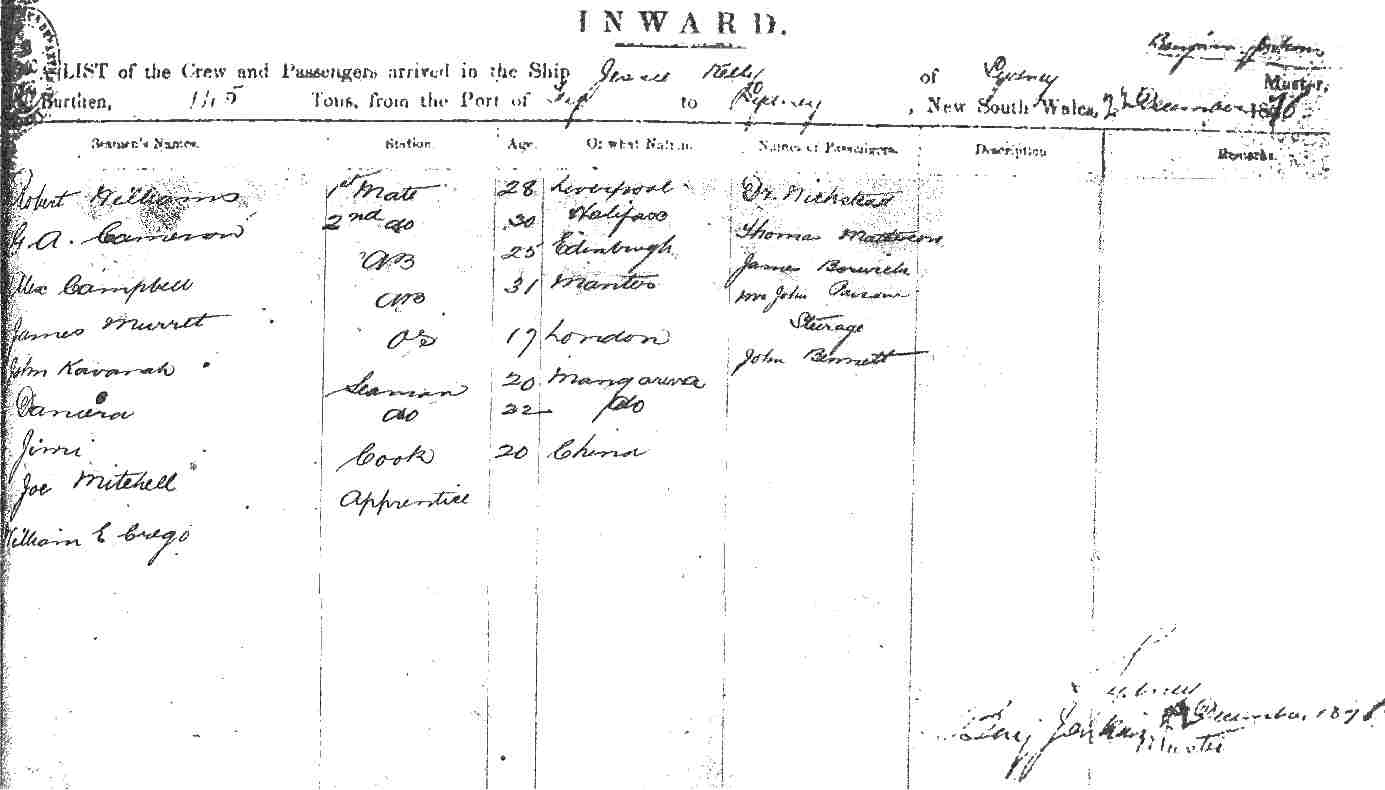 INWARD.
Benjamin Jenkins
LIST of the Crew and Passengers arrived in the Ship Jessie Kelly of Sydney Master,
Burthen, 145 Tons, from the Port of Fiji to Sydney, New South Wales, December 1876
Seamen's Names. Station. Age. Of what Nation. Names of Passengers. Description Remarks.
Robert Williams 1st Mate 28 Liverpool Dr.
G. A. Cameron 2nd do 30 Halifax Thomas Matteson
Alex Campbell AB 25 Edinburgh James Borwick
James Murrett AB 31 Mantes Mrs John Parsons
Steerage
John Kavanah OS 17 London John Bennett
Daniera Seaman 20 Mangareva
Jimi do 22 do
Joe Mitchell Cook 20 China
William E Crego Apprentice
Sydney
December, 1876
Benj Jenkins
Master